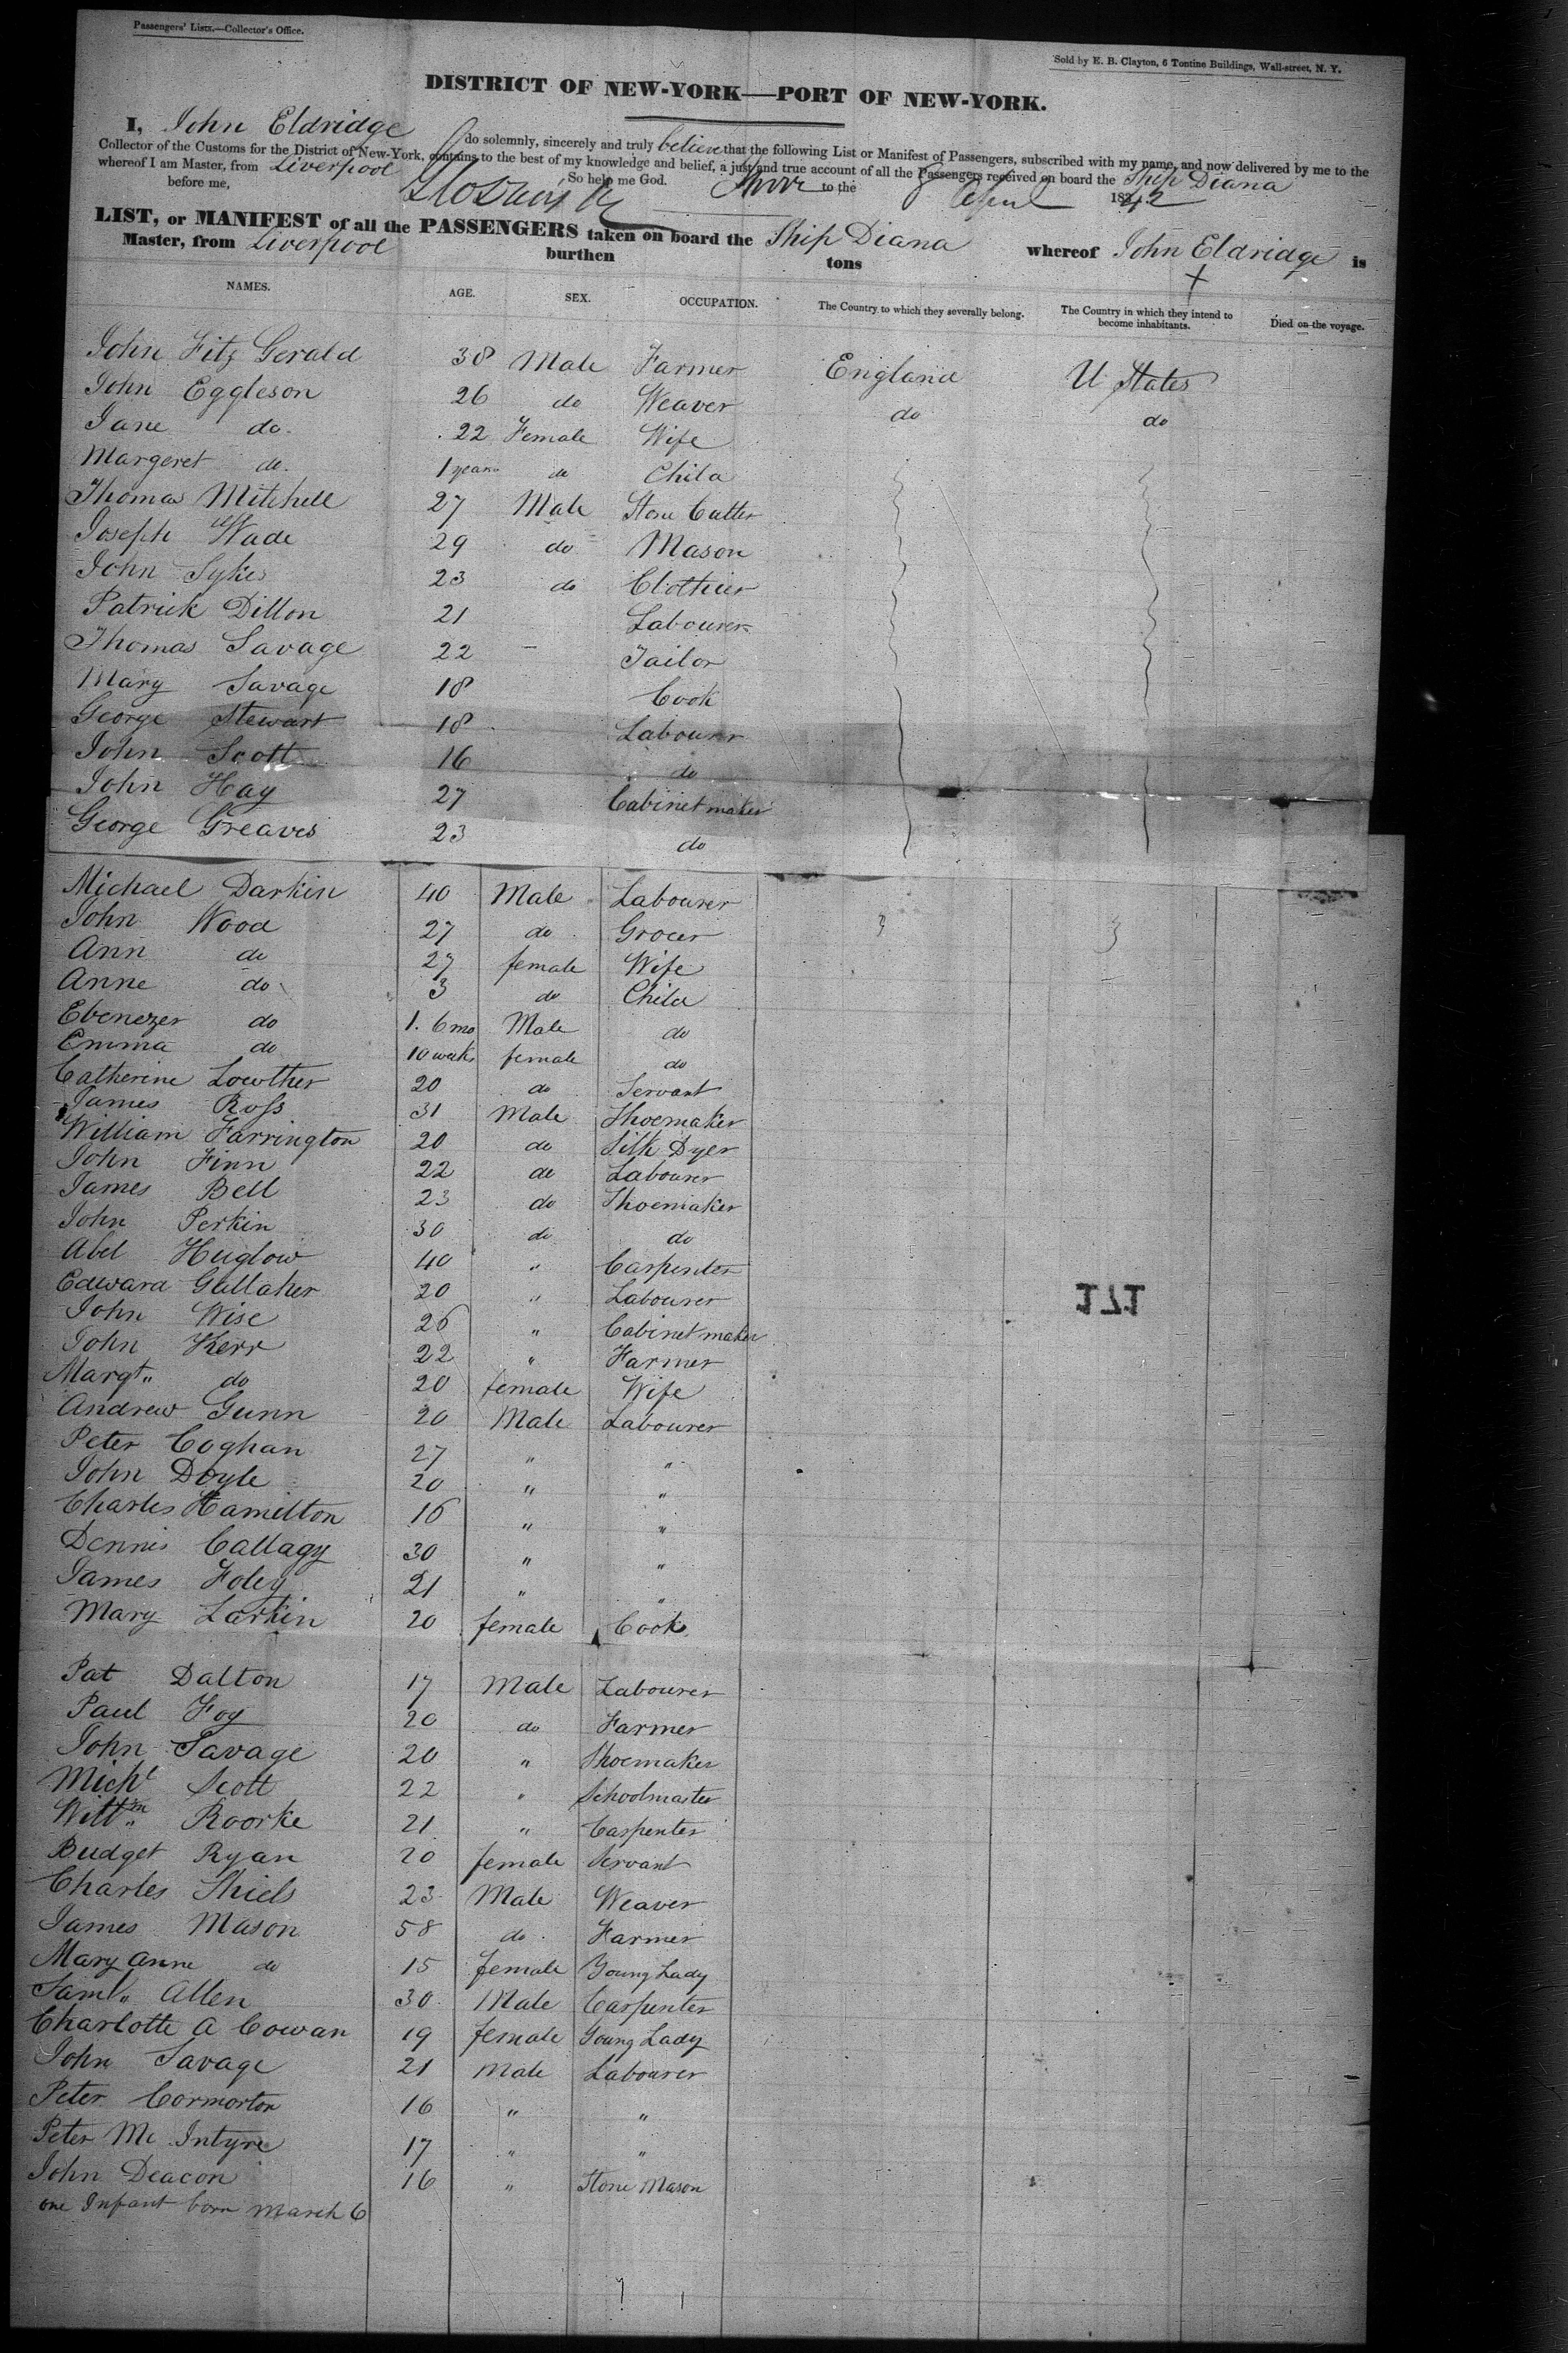 Passengers' Lists.—Collector's Office.
Sold by E. B. Clayton, 6 Tontine Buildings, Wall-street, N. Y.
DISTRICT OF NEW-YORK—PORT OF NEW-YORK.
I, John Eldridge do solemnly, sincerely and truly believe that the following List or Manifest of Passengers, subscribed with my name, and now delivered by me to the
Collector of the Customs for the District of New-York, contains to the best of my knowledge and belief, a just and true account of all the Passengers received on board the Ship Diana
whereof I am Master, from Liverpool So help me God.
before me, to the 8 April 1842
LIST, or MANIFEST of all the PASSENGERS taken on board the Ship Diana whereof John Eldridge is
Master, from Liverpool burthen tons
NAMES. AGE. SEX. OCCUPATION. The Country to which they severally belong. The Country in which they intend to become inhabitants. Died on the voyage.
John Fitz Gerald 38 Male Farmer England U States
John Eggleson 26 do Weaver do do
Jane do. 22 Female Wife
Margeret do. 1 year do Child
Thomas Mitchell 27 Male Stone Cutter
Joseph Wade 29 do Mason
John Sykes 23 do Clothier
Patrick Dillon 21 Labourer
Thomas Savage 22 Tailor
Mary Savage 18 Cook
George Stewart 18 Labourer
John Scott 16 do
John Hay 27 Cabinet maker
George Greaves 23 do
Michael Darkin 40 Male Labourer
John Wood 27 do Grocer
Ann do 27 female Wife
Anne do 3 do Child
Ebenezer do 1. 6 mo Male do
Emma do 10 weeks female do
Catherine Lowther 20 do Servant
James Ross 31 Male Shoemaker
William Farrington 20 do Silk Dyer
John Finn 22 do Labourer
James Bell 23 do Shoemaker
John Perkin 30 do do
Abel Huglow 40 " Carpenter
Edward Gallaher 20 " Labourer
171
John Wise 26 " Cabinet maker
John Kerr 22 " Farmer
Margt" do 20 female Wife
Andrew Gunn 20 Male Labourer
Peter Coghan 27 " "
John Doyle 20 " "
Charles Hamilton 16 " "
Dennis Callagy 30 " "
James Foley 21 " "
Mary Larkin 20 female Cook
Pat Dalton 17 Male Labourer
Paul Foy 20 do Farmer
John Savage 20 " Shoemaker
Michl Scott 22 " Schoolmaster
Willm" Roorke 21 " Carpenter
Budget Ryan 20 female Servant
Charles Shiels 23 Male Weaver
James Mason 58 do Farmer
Mary Anne do 15 female Young Lady
Saml" Allen 30 Male Carpenter
Charlotte A Cowan 19 female Young Lady
John Savage 21 Male Labourer
Peter Cormorton 16 " "
Peter Mc Intyre 17 " "
John Deacon 16 " Stone Mason
one Infant born March 6